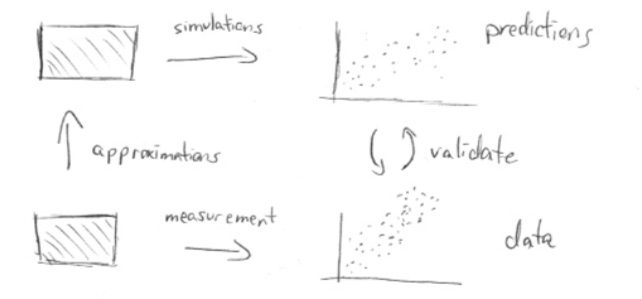 simulations
predictions
approximations
validate
measurement
data